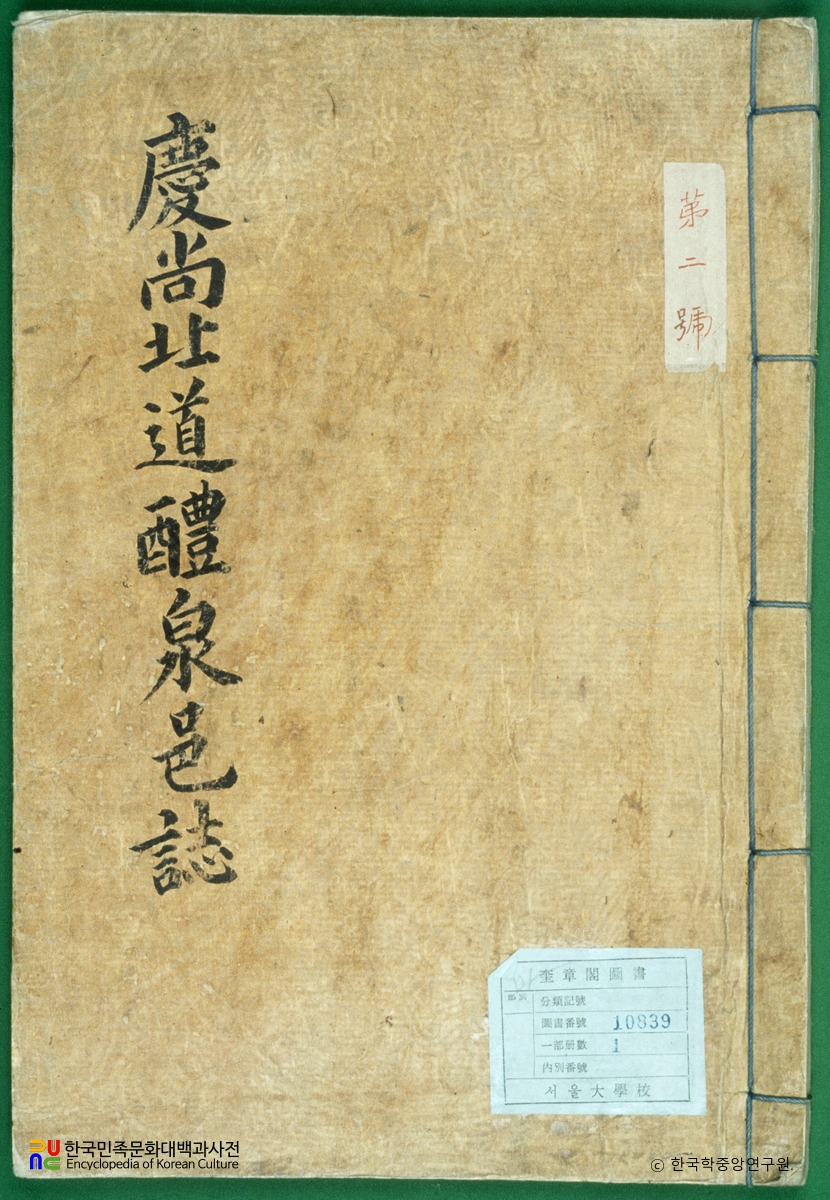 慶尚北道醴泉邑誌
第二號
奎章閣圖書
分類記號
圖書番號 10839
一部册數 1
內別番號
서울大學校
한국민족문화대백과사전
Encyclopedia of Korean Culture
© 한국학중앙연구원